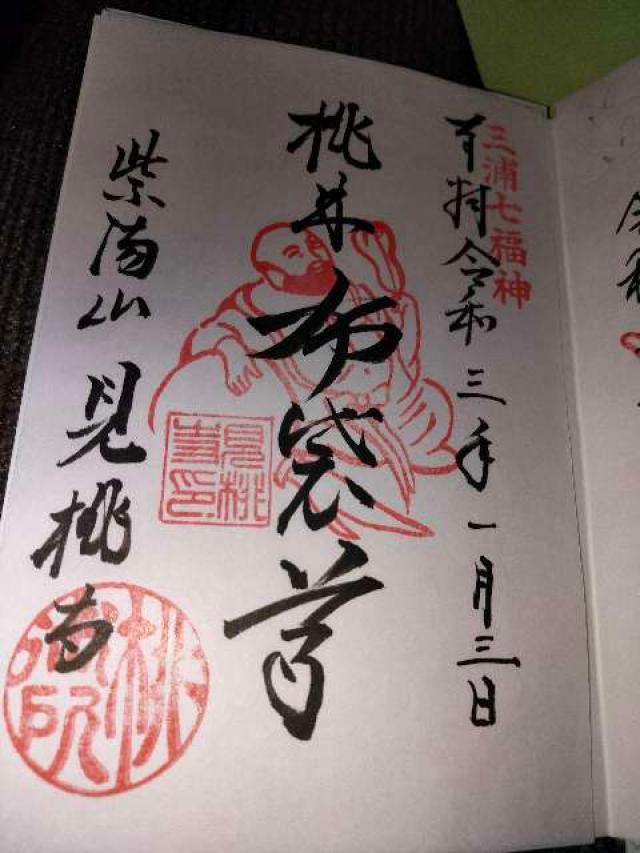 三浦七福神
奉拝 令和三年一月三日
桃林 布袋尊
見桃寺印
紫陽山 見桃寺